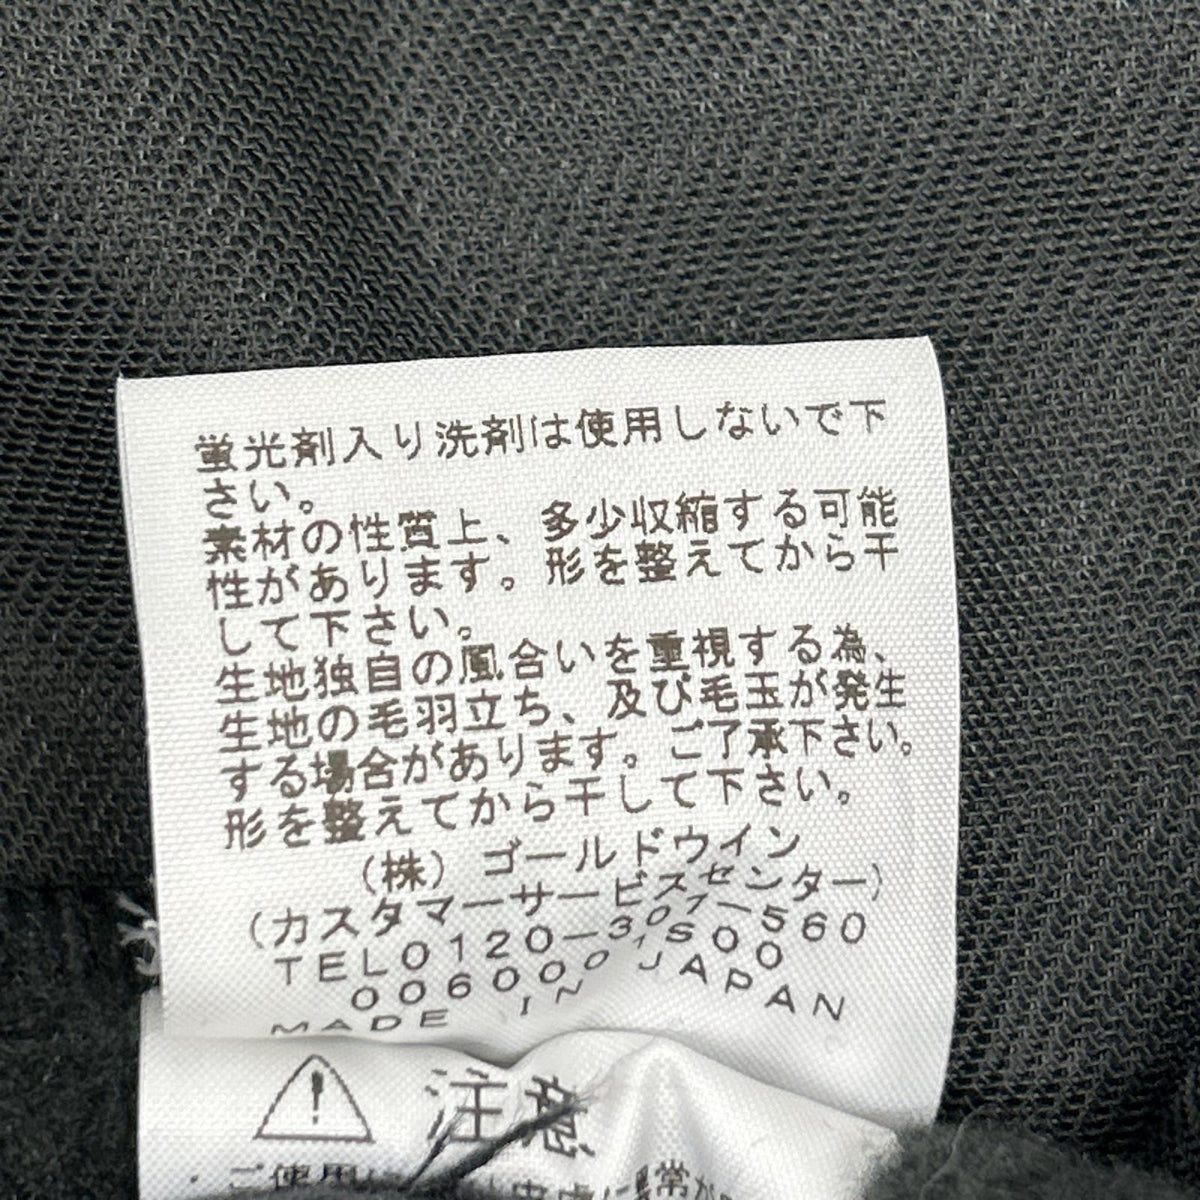 蛍光剤入り洗剤は使用しないで下
さい。
素材の性質上、多少収縮する可能
性があります。形を整えてから干
して下さい。
生地独自の風合いを重視する為、
生地の毛羽立ち、及び毛玉が発生
する場合があります。ご了承下さい。
形を整えてから干して下さい。
(株) ゴールドウイン
(カスタマーサービスセンター)
TEL0120-307-560
MADE IN JAPAN
注意
・ご使用